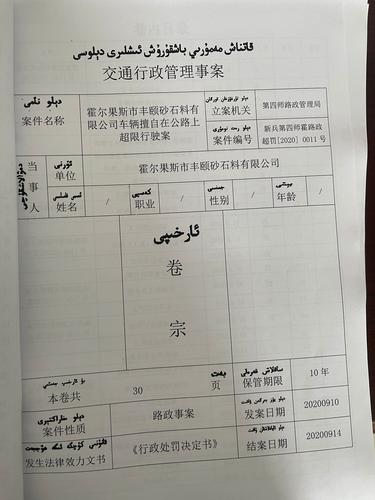 قاتناش مەمۇرىي باشقۇرۇش ئىشلىرى دېلوسى
交通行政管理事案
دېلو نامى
案件名称
霍尔果斯市丰颐砂石料有
限公司车辆擅自在公路上
超限行驶案
立案机关
第四师路政管理局
案件编号
新兵第四师霍路政
超罚[2020] 0011 号
当事人
ئورنى
单位
霍尔果斯市丰颐砂石料有限公司
姓名
/
كەسپى
职业
/
جىنسى
性别
/
يېشى
年龄
/
ئارخىپى
卷
宗
本卷共
30
بەت
页
ساقلاش قەرەلى
保管期限
10 年
案件性质
路政事案
发案日期
20200910
发生法律效力文书
《行政处罚决定书》
结案日期
20200914